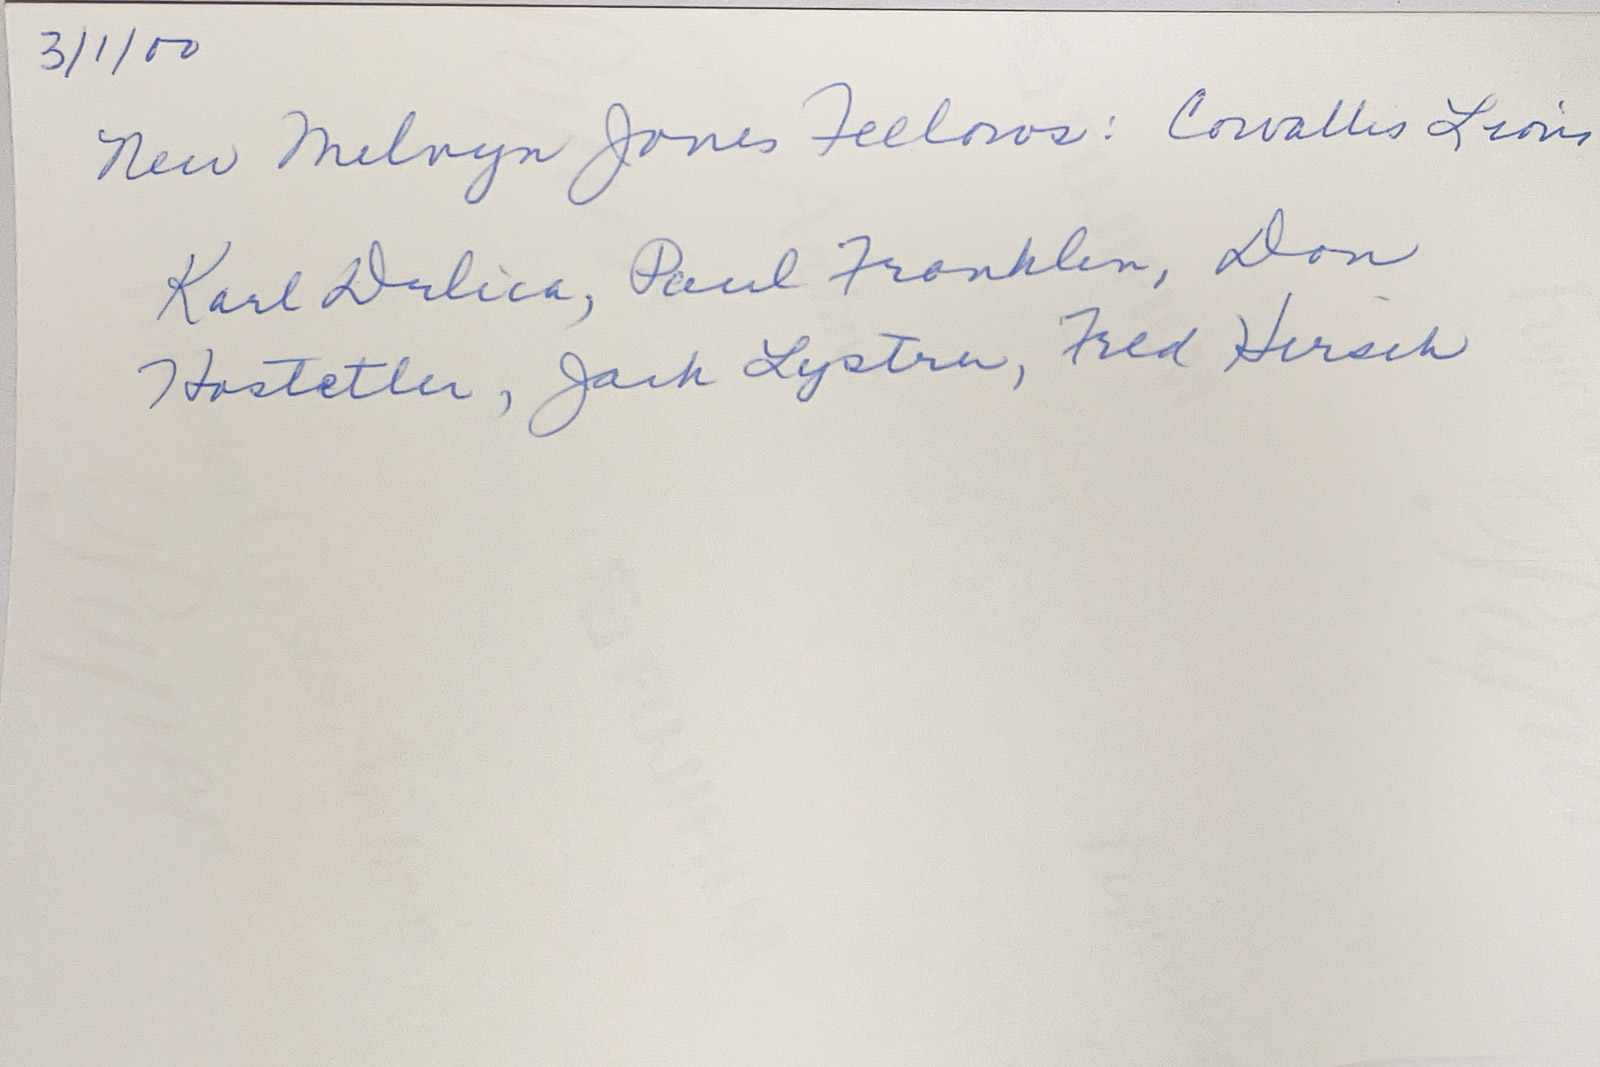 3/1/00
New Melvyn Jones Fellows: Corvallis Lions
Karl Drlica, Paul Franklin, Don
Hostetler, Jack Lystra, Fred Hirsch